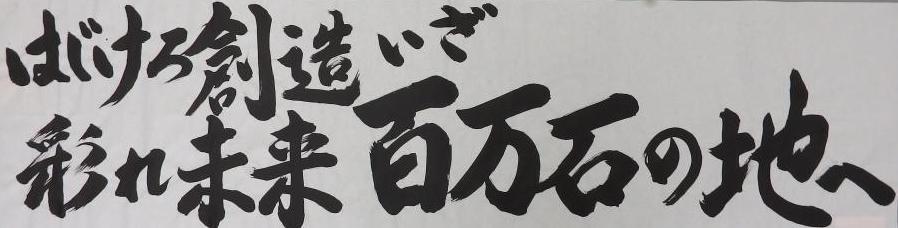 はじけろ創造
彩れ未来
いざ
百万石の地へ